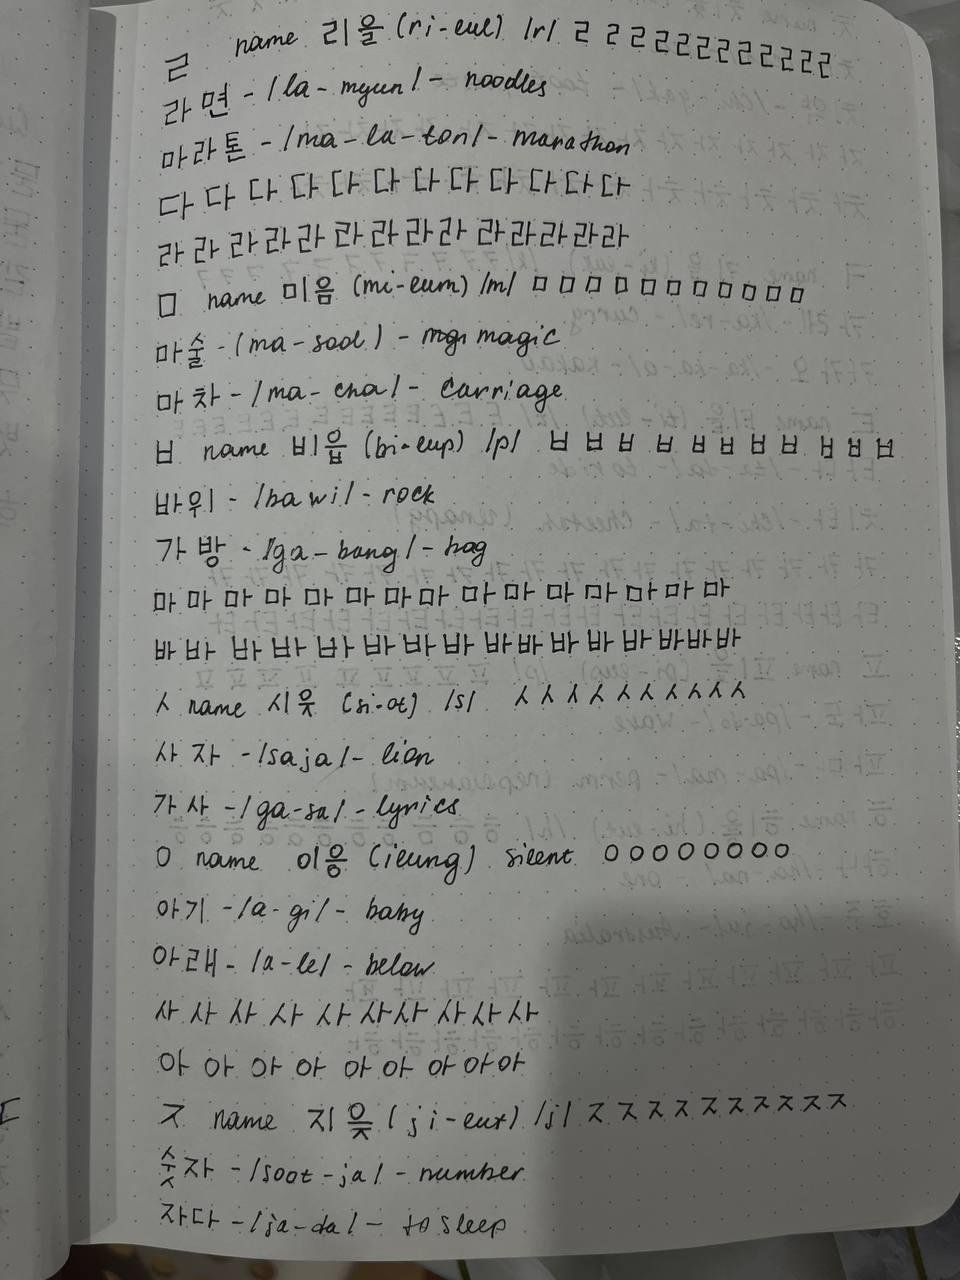 ㄹ name 리을 (ri-eul) /r/ ㄹ ㄹ ㄹ ㄹ ㄹ ㄹ ㄹ ㄹ ㄹ ㄹ ㄹ
라면 - /la-myun/ - noodles
마라톤 - /ma-la-ton/ - marathon
다 다 다 다 다 다 다 다 다 다 다 다
라 라 라 라 라 라 라 라 라 라 라 라 라
ㅁ name 미음 (mi-eum) /m/ ㅁ ㅁ ㅁ ㅁ ㅁ ㅁ ㅁ ㅁ ㅁ ㅁ ㅁ
마술 - (ma-sool) - magic
마차 - /ma-cha/ - carriage
ㅂ name 비읍 (bi-eup) /p/ ㅂ ㅂ ㅂ ㅂ ㅂ ㅂ ㅂ ㅂ ㅂ ㅂ
바위 - /ba wi/ - rock
가방 - /ga-bang/ - bag
마 마 마 마 마 마 마 마 마 마 마 마 마 마 마
바 바 바 바 바 바 바 바 바 바 바 바 바 바 바 바
ㅅ name 시읏 (si-ot) /s/ ㅅ ㅅ ㅅ ㅅ ㅅ ㅅ ㅅ ㅅ ㅅ ㅅ
사자 - /saja/ - lion
가사 - /ga-sa/ - lyrics
ㅇ name 이응 (ieung) silent ㅇ ㅇ ㅇ ㅇ ㅇ ㅇ ㅇ ㅇ
아기 - /a-gi/ - baby
아래 - /a-le/ - below
사 사 사 사 사 사 사 사 사 사
아 아 아 아 아 아 아 아 아
ㅈ name 지읒 (ji-eut) /j/ ㅈ ㅈ ㅈ ㅈ ㅈ ㅈ ㅈ ㅈ ㅈ ㅈ
숫자 - /soot-ja/ - number
자다 - /ja-da/ - to sleep